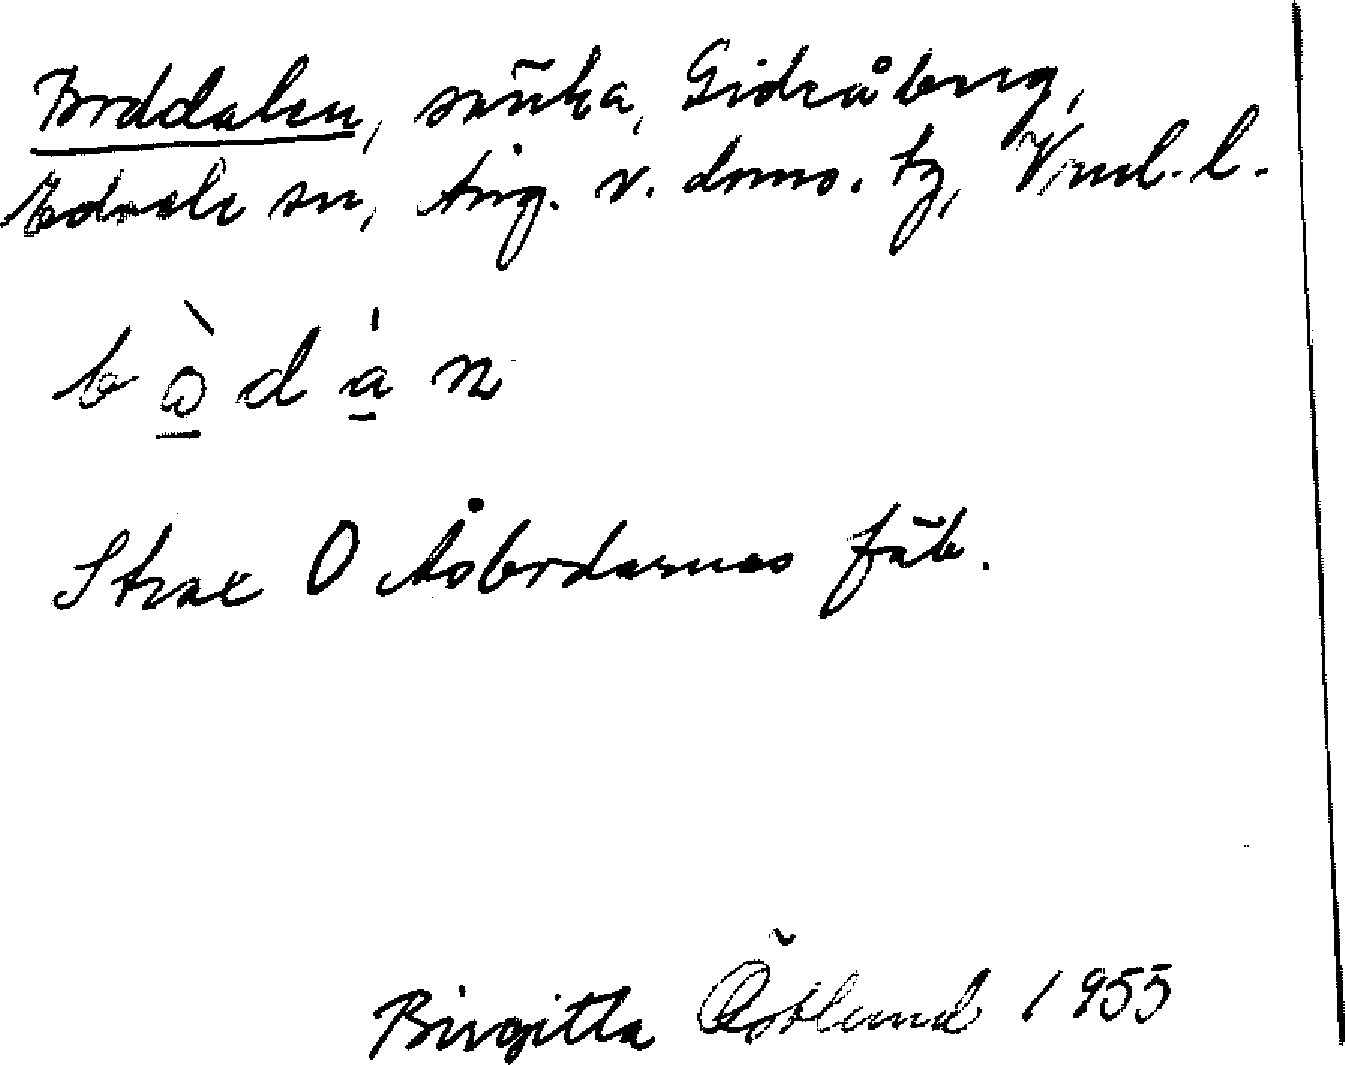 Boddalen, sänka, Gideåberg,
Edsele sn, Ång. v. doms. tg, Vnl. l.
b ò̲ d á̲ n
Strax O Åsbodarnas fäb.
Birgitta Östlund 1955